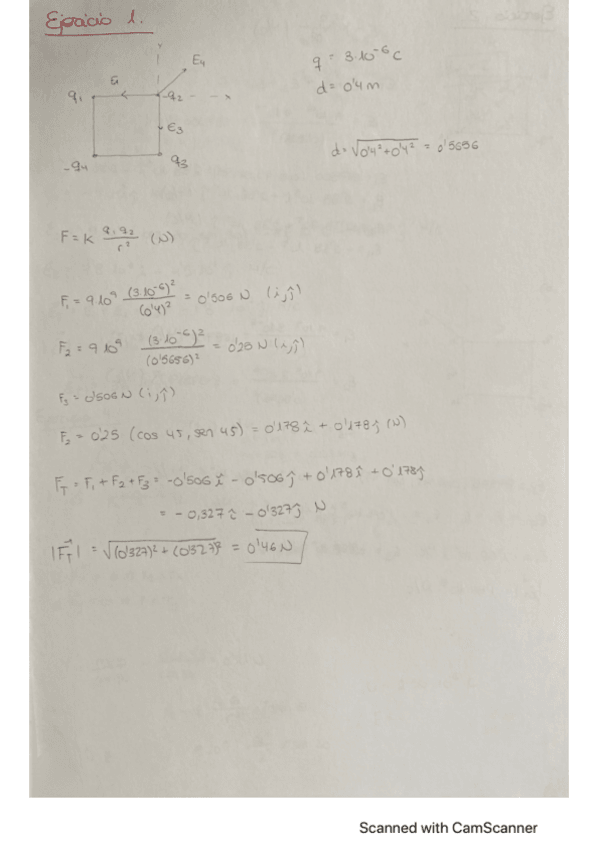 Ejercicio 1.
E4
q = 3·10⁻⁶ C
d = 0'4 m
q1
-q2
x
E3
-q4
q3
d = √0'4² + 0'4² = 0'5656
F = K q1 q2 / r² (N)
F1 = 9·10⁹ (3·10⁻⁶)² / (0'4)² = 0'506 N (î, ĵ)
F2 = 9·10⁹ (3·10⁻⁶)² / (0'5656)² = 0'25 N (î, ĵ)
F3 = 0'506 N (î, ĵ)
F2 = 0'25 (cos 45, sen 45) = 0'178 î + 0'178 ĵ (N)
FT = F1 + F2 + F3 = -0'506 î - 0'506 ĵ + 0'178 î + 0'178 ĵ
= -0,327 î - 0'327 ĵ N
|FT| = √(0'327)² + (0'327)² = 0'46 N
Scanned with CamScanner